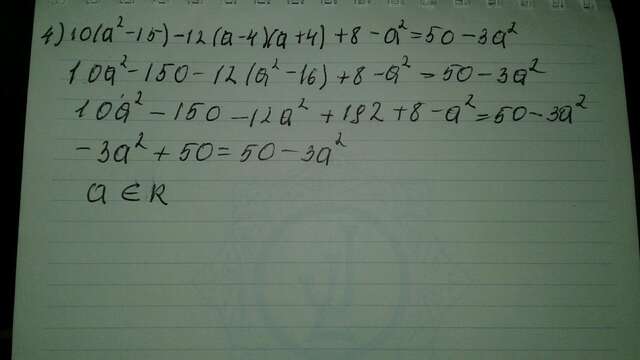 4) 10(a²-15)-12(a-4)(a+4)+8-a²=50-3a²
10a²-150-12(a²-16)+8-a²=50-3a²
10a²-150-12a²+192+8-a²=50-3a²
-3a²+50=50-3a²
a∈R